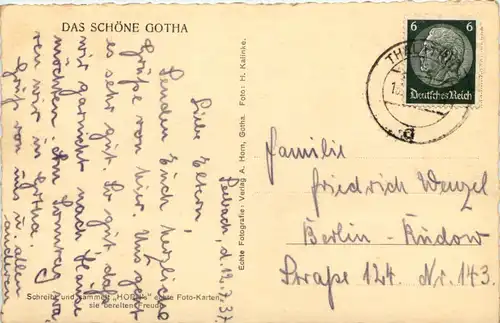 DAS SCHÖNE GOTHA
6 6
Deutsches Reich
THAL
d
Echte Fotografie: Verlag A. Horn, Gotha. Foto: H. Kalinke.
d. 12.7.37.
Liebe Eltern,
Senden Euch herzliche
Grüße von hier. Uns geht
es sehr gut. So gut, daß
wir garnicht nach Hause
möchten. Am Sonntag wa-
ren wir in Gotha.
Gruß von uns u. allen
anderen
Familie
Friedrich Wenzel
Berlin-Rudow
Straße 124. Nr. 143.
Schreibt und sammelt „HORN's" echte Foto-Karten,
sie bereiten Freude